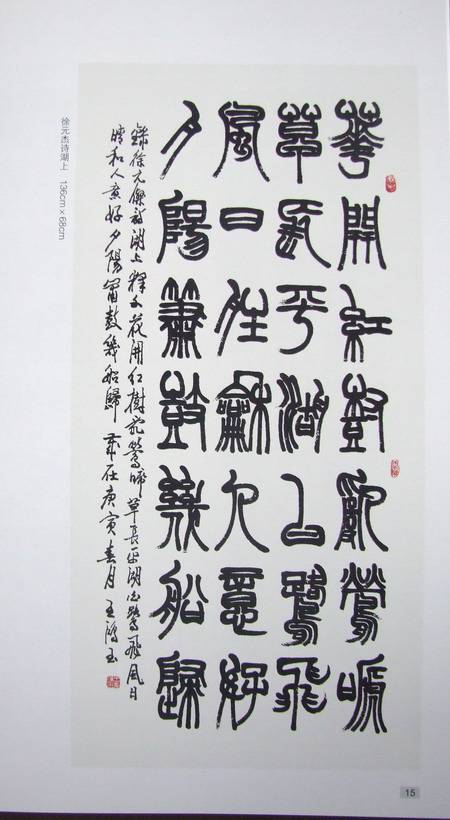 華開紅樹亂鶯啼
草長平湖白鷺飛
風日晴龢人意好
夕陽簫鼓幾船歸
錄徐元傑詩湖上 釋文花開紅樹亂鶯啼 草長平湖白鷺飛 風日
晴和人意好 夕陽簫鼓幾船歸 歲在庚寅春月 王鴻玉
徐元杰诗湖上 136cm×68cm
15